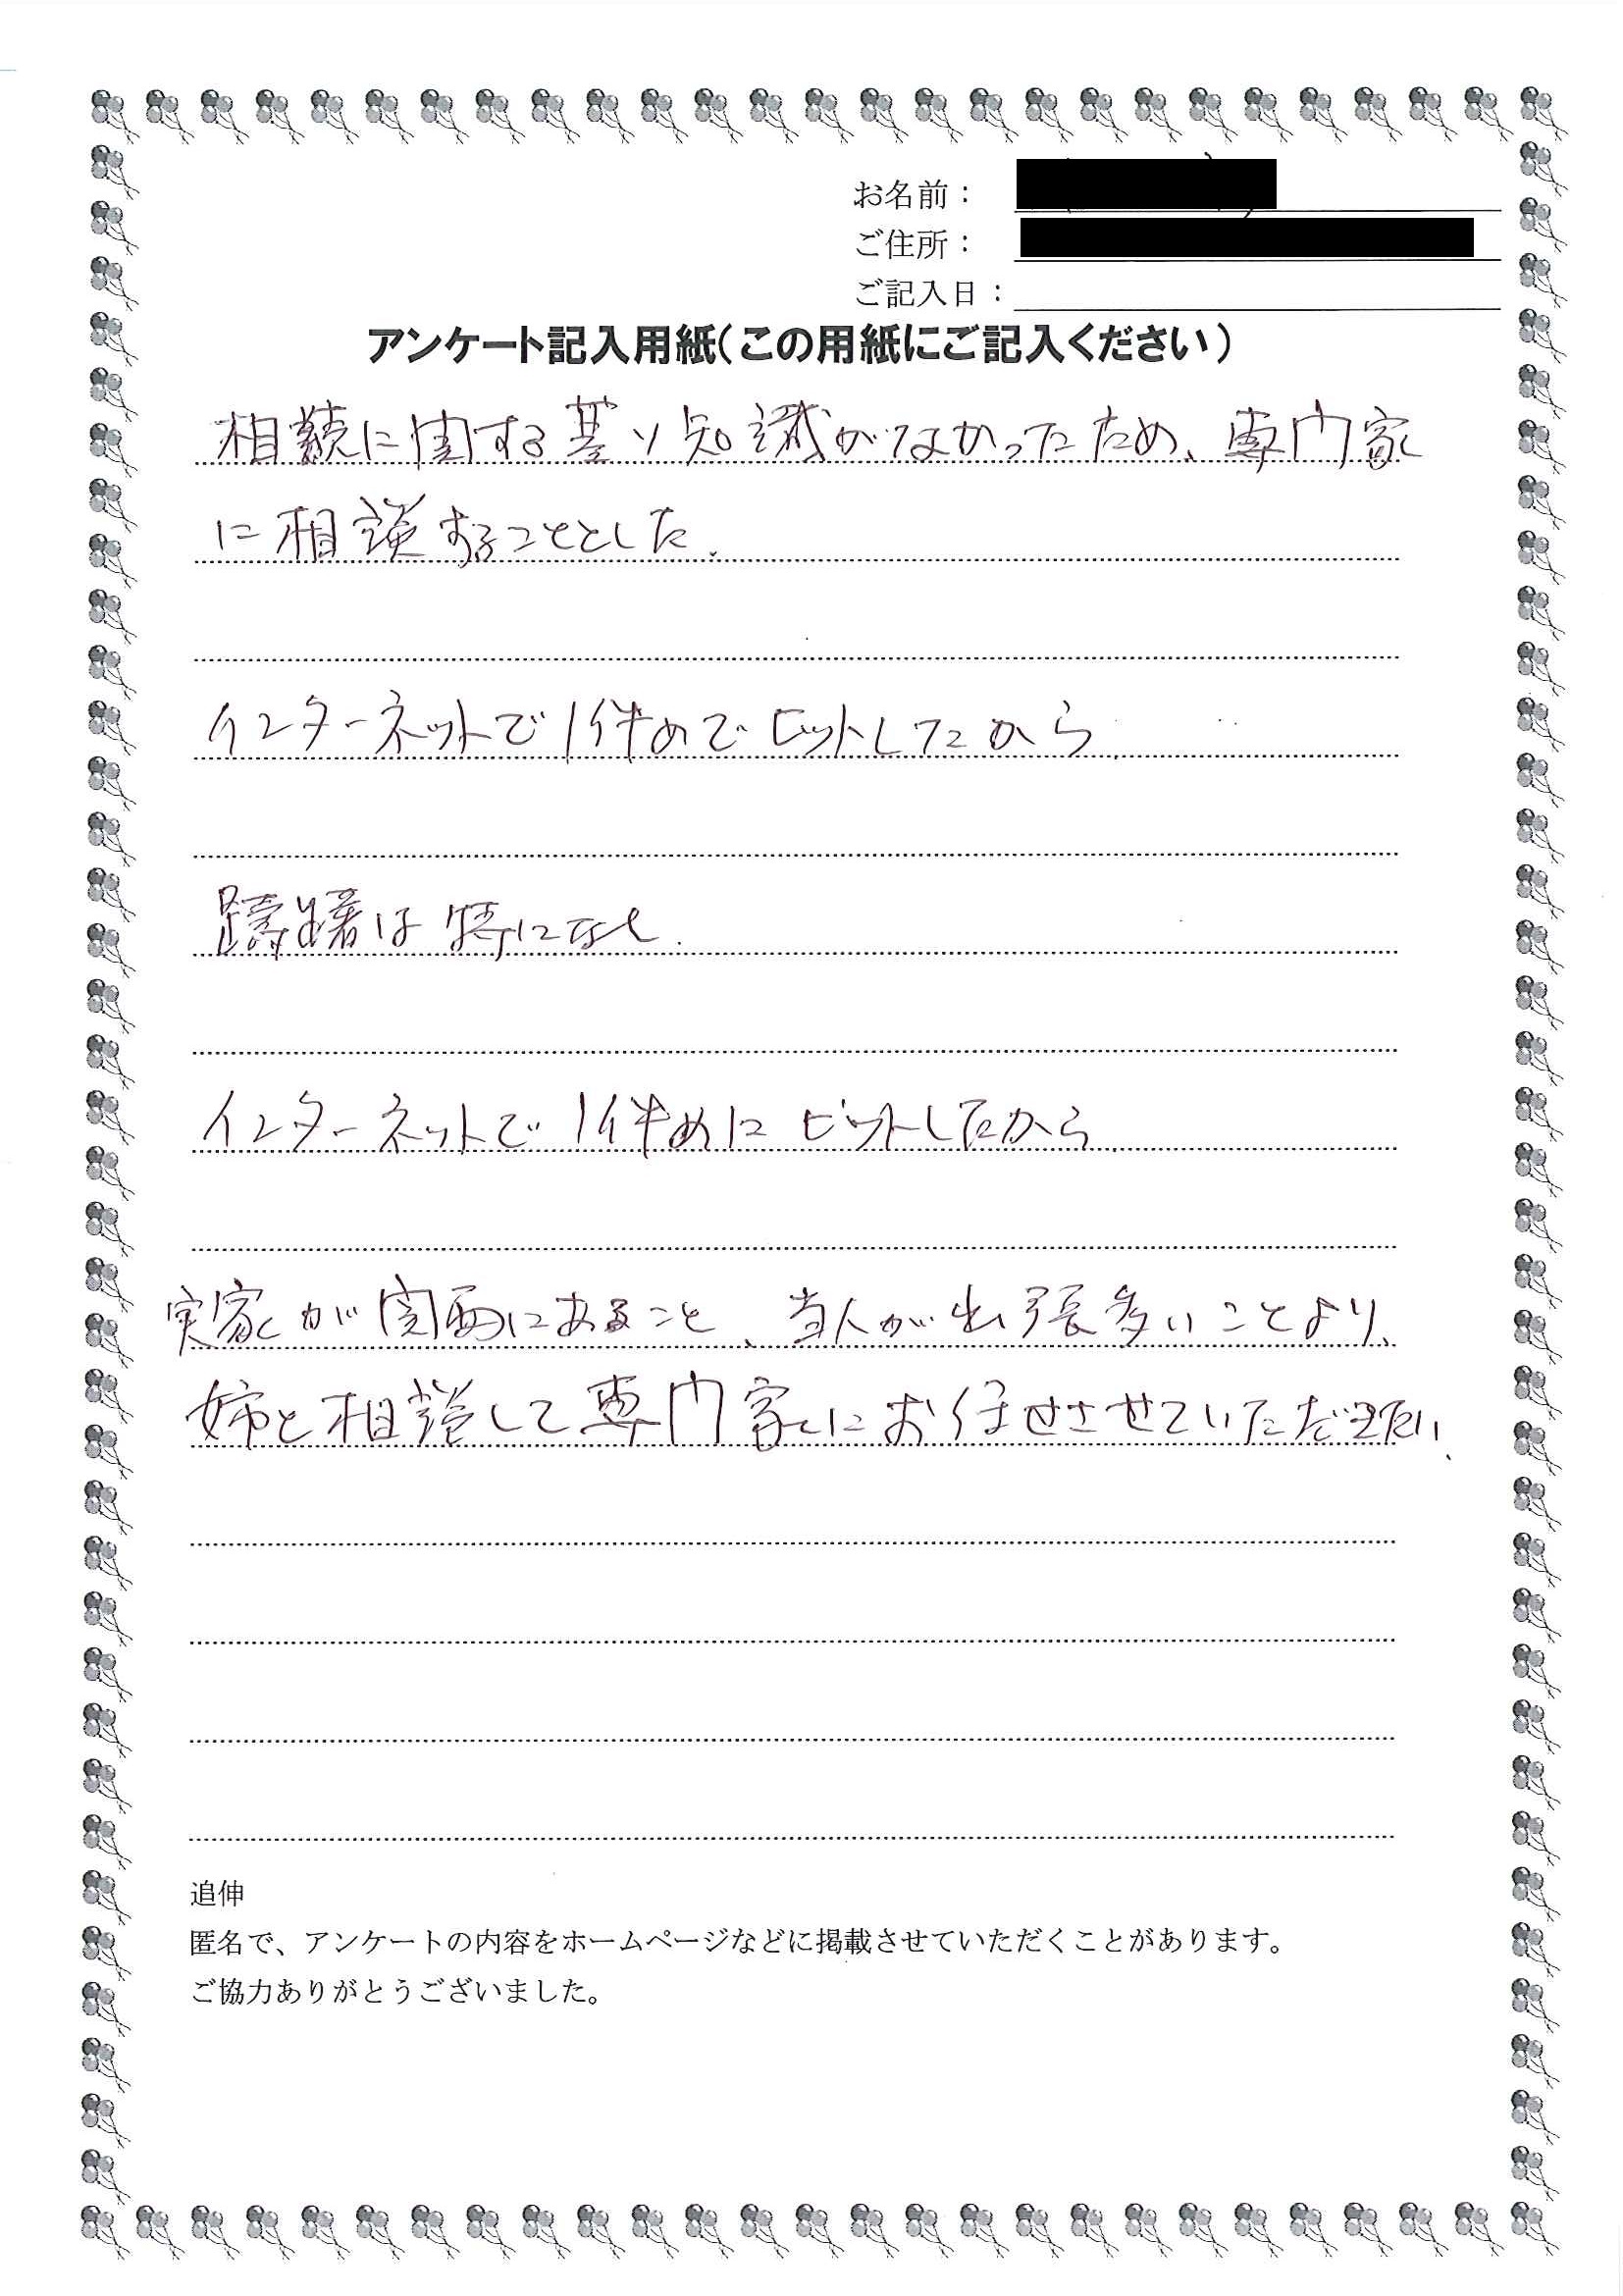 お名前：
ご住所：
ご記入日：
アンケート記入用紙(この用紙にご記入ください)
相続に関する基ソ知識がなかったため、専門家
に相談することとした.
インターネットで1件めでヒットしたから
躊躇は特になし.
インターネットで1件めにヒットしたから
実家が関西にあること、当人が出張多いことより、
姉と相談して専門家にお任せさせていただきたい、
追伸
匿名で、アンケートの内容をホームページなどに掲載させていただくことがあります。
ご協力ありがとうございました。